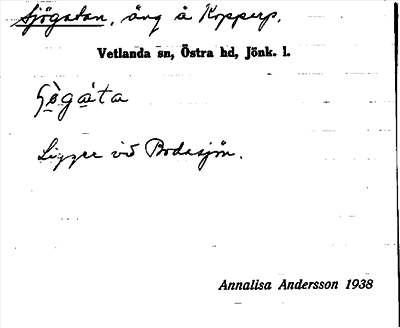 Sjögatan, äng å Kopperp.
Vetlanda sn, Östra hd, Jönk. l.
Ligger vid Bodasjön.
Annalisa Andersson 1938